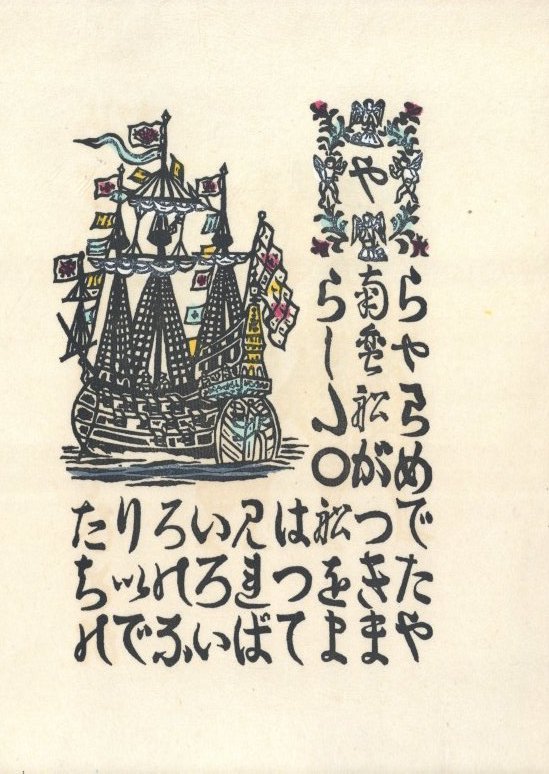 や
らやらめでたや
南蛮船がつきま
らし○船をま
はつて
見れば
いろい
ろのふ
りいで
たちの